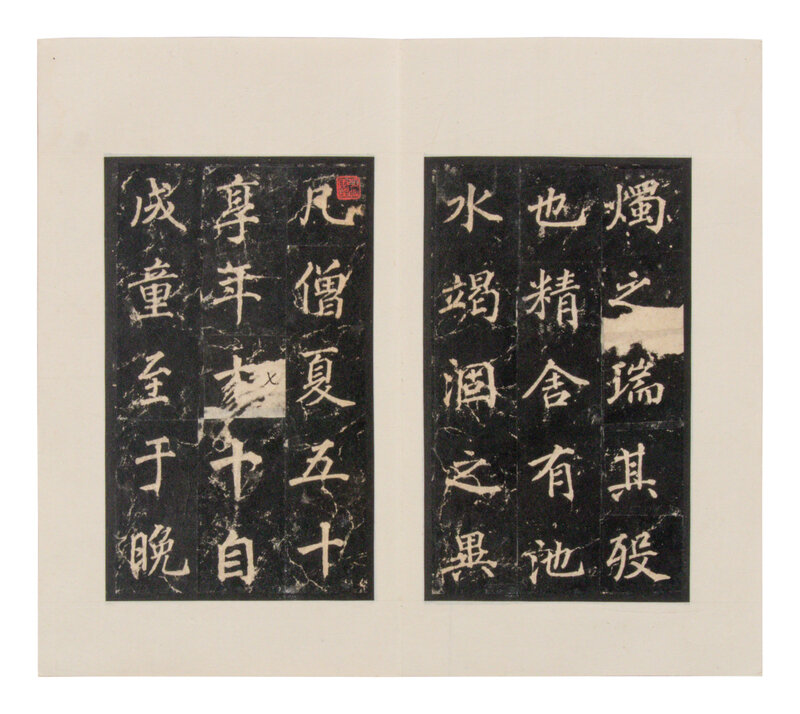 燭之瑞其歿
也精舍有池
水竭涸之異
凡僧夏五十
享年十自
成童至于晚